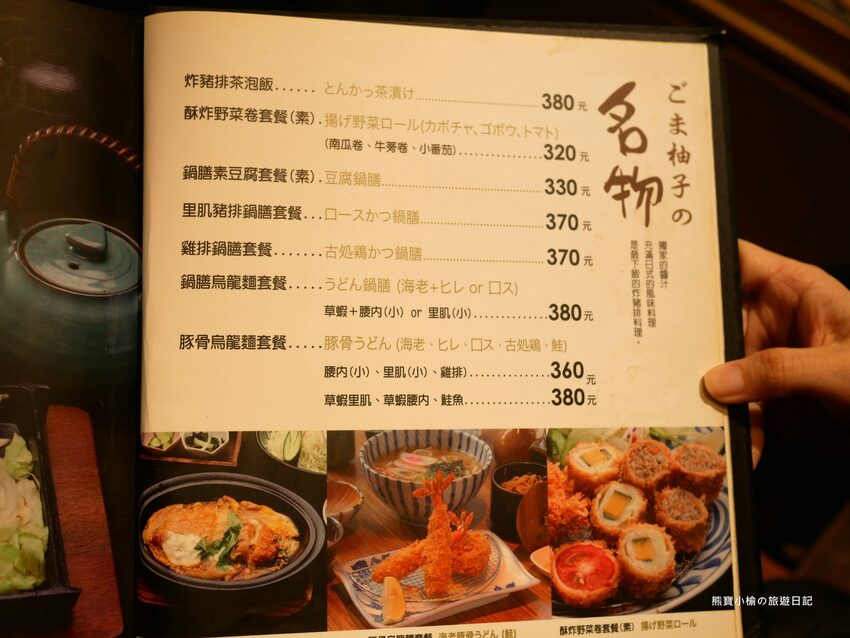 ごま柚子の
名物
獨家的醬汁
充滿日式的風味料理
是最下飯的炸豬排料理。
炸豬排茶泡飯...... とんかっ茶漬け........................380元
酥炸野菜卷套餐(素). 揚げ野菜ロール(カボチャ、ゴボウ、トマト)
(南瓜卷、牛蒡卷、小番茄)................320元
鍋膳素豆腐套餐(素). 豆腐鍋膳................................330元
里肌豬排鍋膳套餐... ロースかつ鍋膳........................370元
雞排鍋膳套餐....... 古処鶏かつ鍋膳........................370元
鍋膳烏龍麵套餐..... うどん鍋膳 (海老+ヒレ or 口ス)
草蝦+腰内(小) or 里肌(小)................380元
豚骨烏龍麵套餐..... 豚骨うどん (海老、ヒレ、口ス、古処鶏、鮭)
腰內(小)、里肌(小)、雞排................360元
草蝦里肌、草蝦腰內、鮭魚................380元
海老豚骨うどん (鮭)
酥炸野菜卷套餐(素) 揚げ野菜ロール
熊寶小榆の旅遊日記